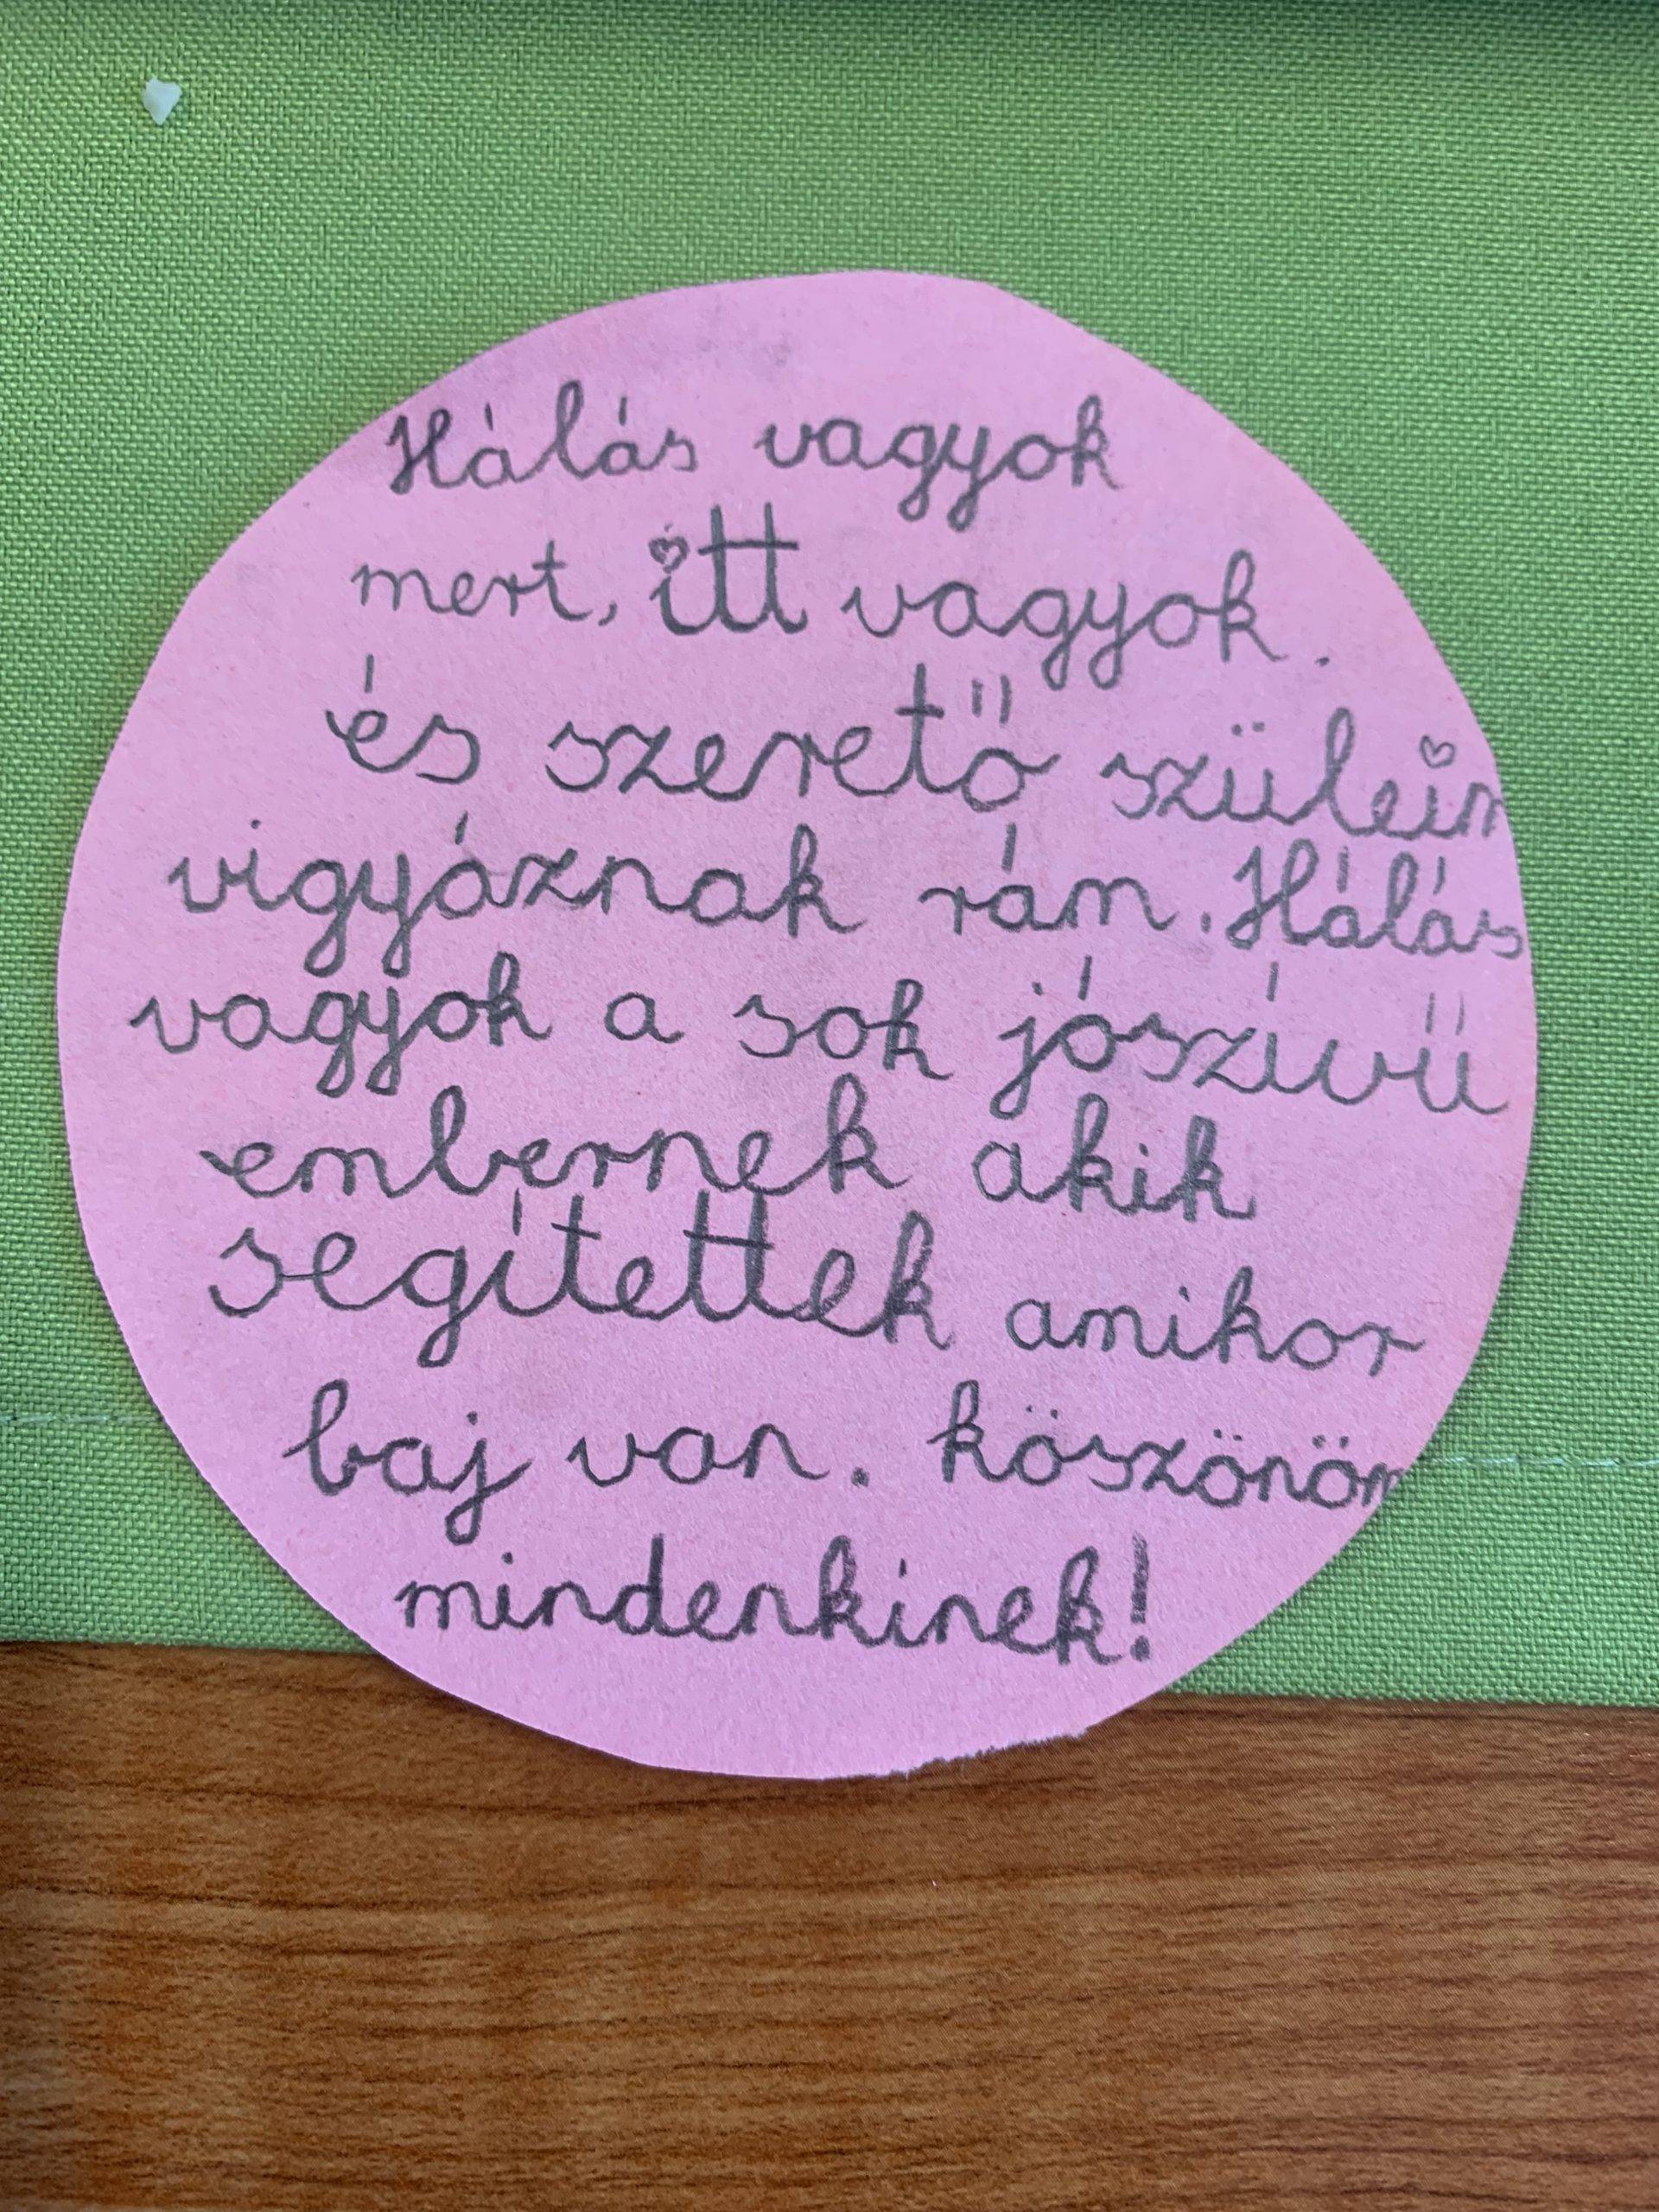 Hálás vagyok
mert, itt vagyok.
és szerető szüleim
vigyáznak rám. Hálás
vagyok a sok jószívű
embernek akik
segítettek amikor
baj van. köszönöm
mindenkinek!